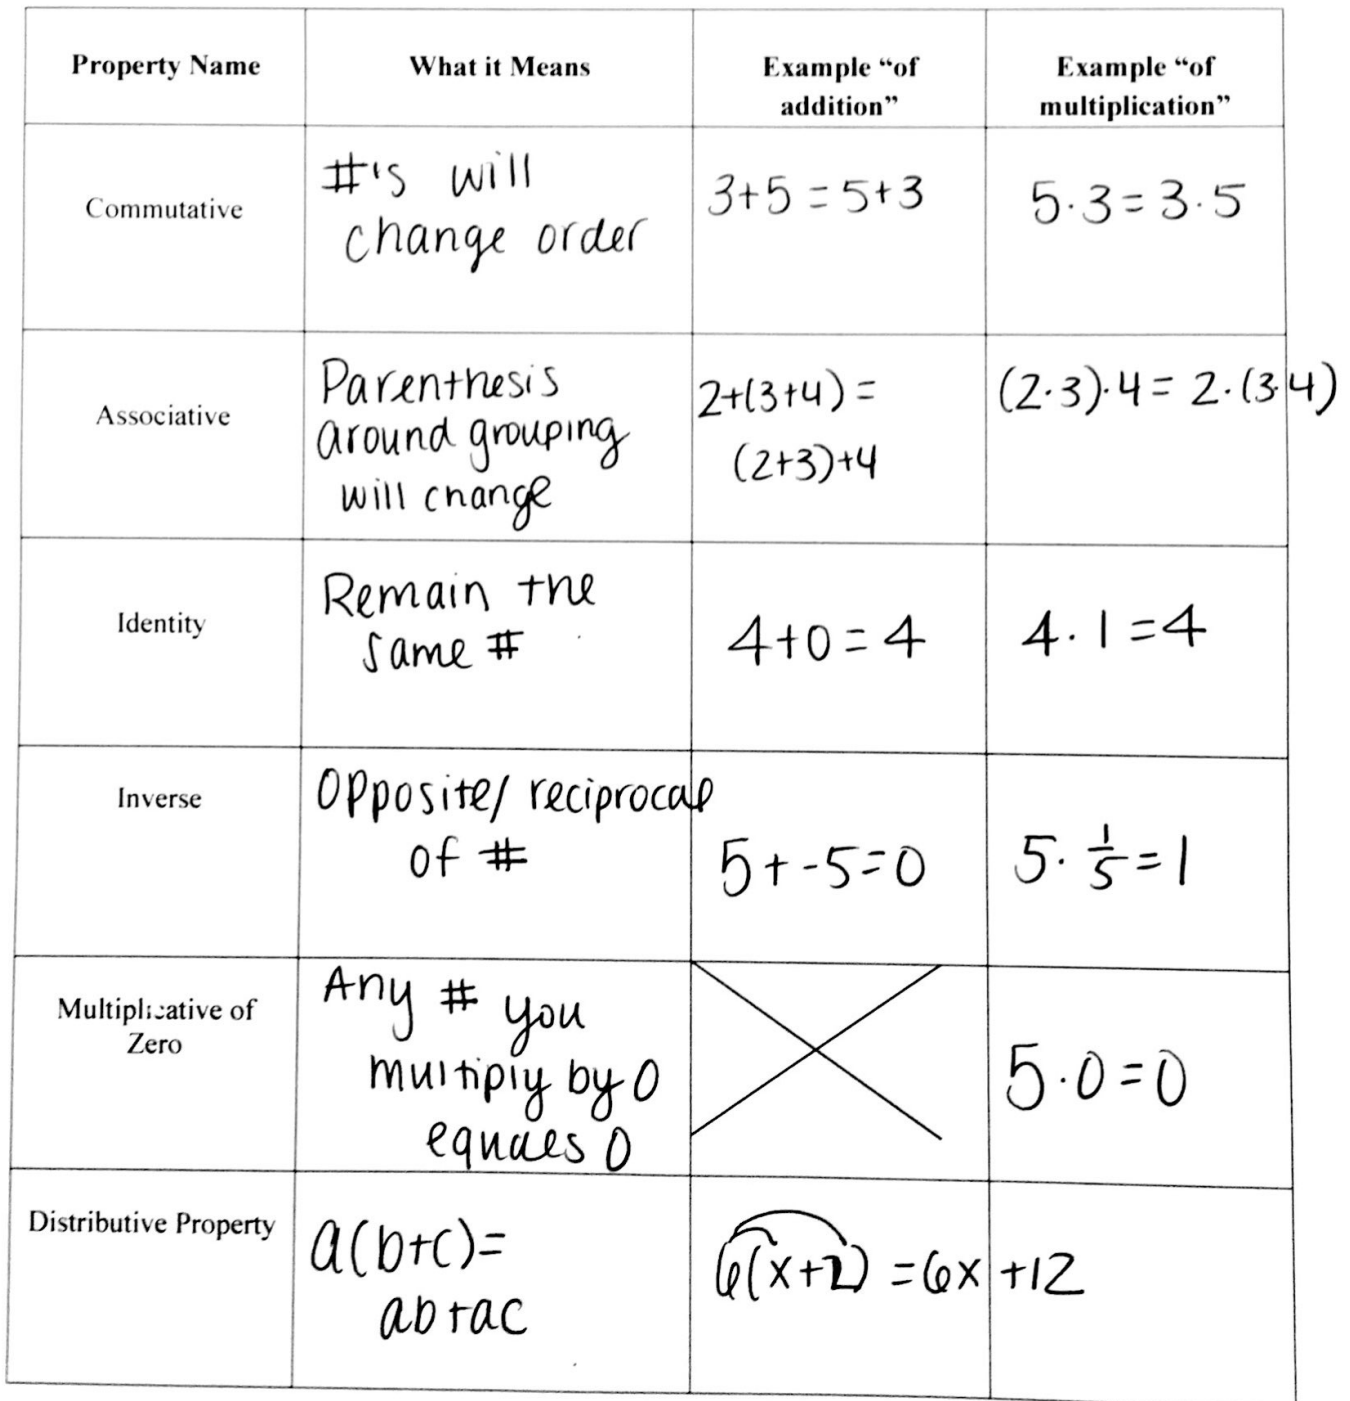 Property Name
What it Means
Example “of
addition”
Example “of
multiplication”
Commutative
#'s will
change order
3+5=5+3
5·3=3·5
Associative
Parenthesis
around grouping
will change
2+(3+4)=
(2+3)+4
(2·3)·4=2·(3·4)
Identity
Remain the
same #
4+0=4
4·1=4
Inverse
Opposite/reciprocal
of #
5+-5=0
5·1/5=1
Multiplicative of
Zero
Any # you
multiply by 0
equals 0
5·0=0
Distributive Property
a(b+c)=
ab+ac
6(x+2)=6x+12